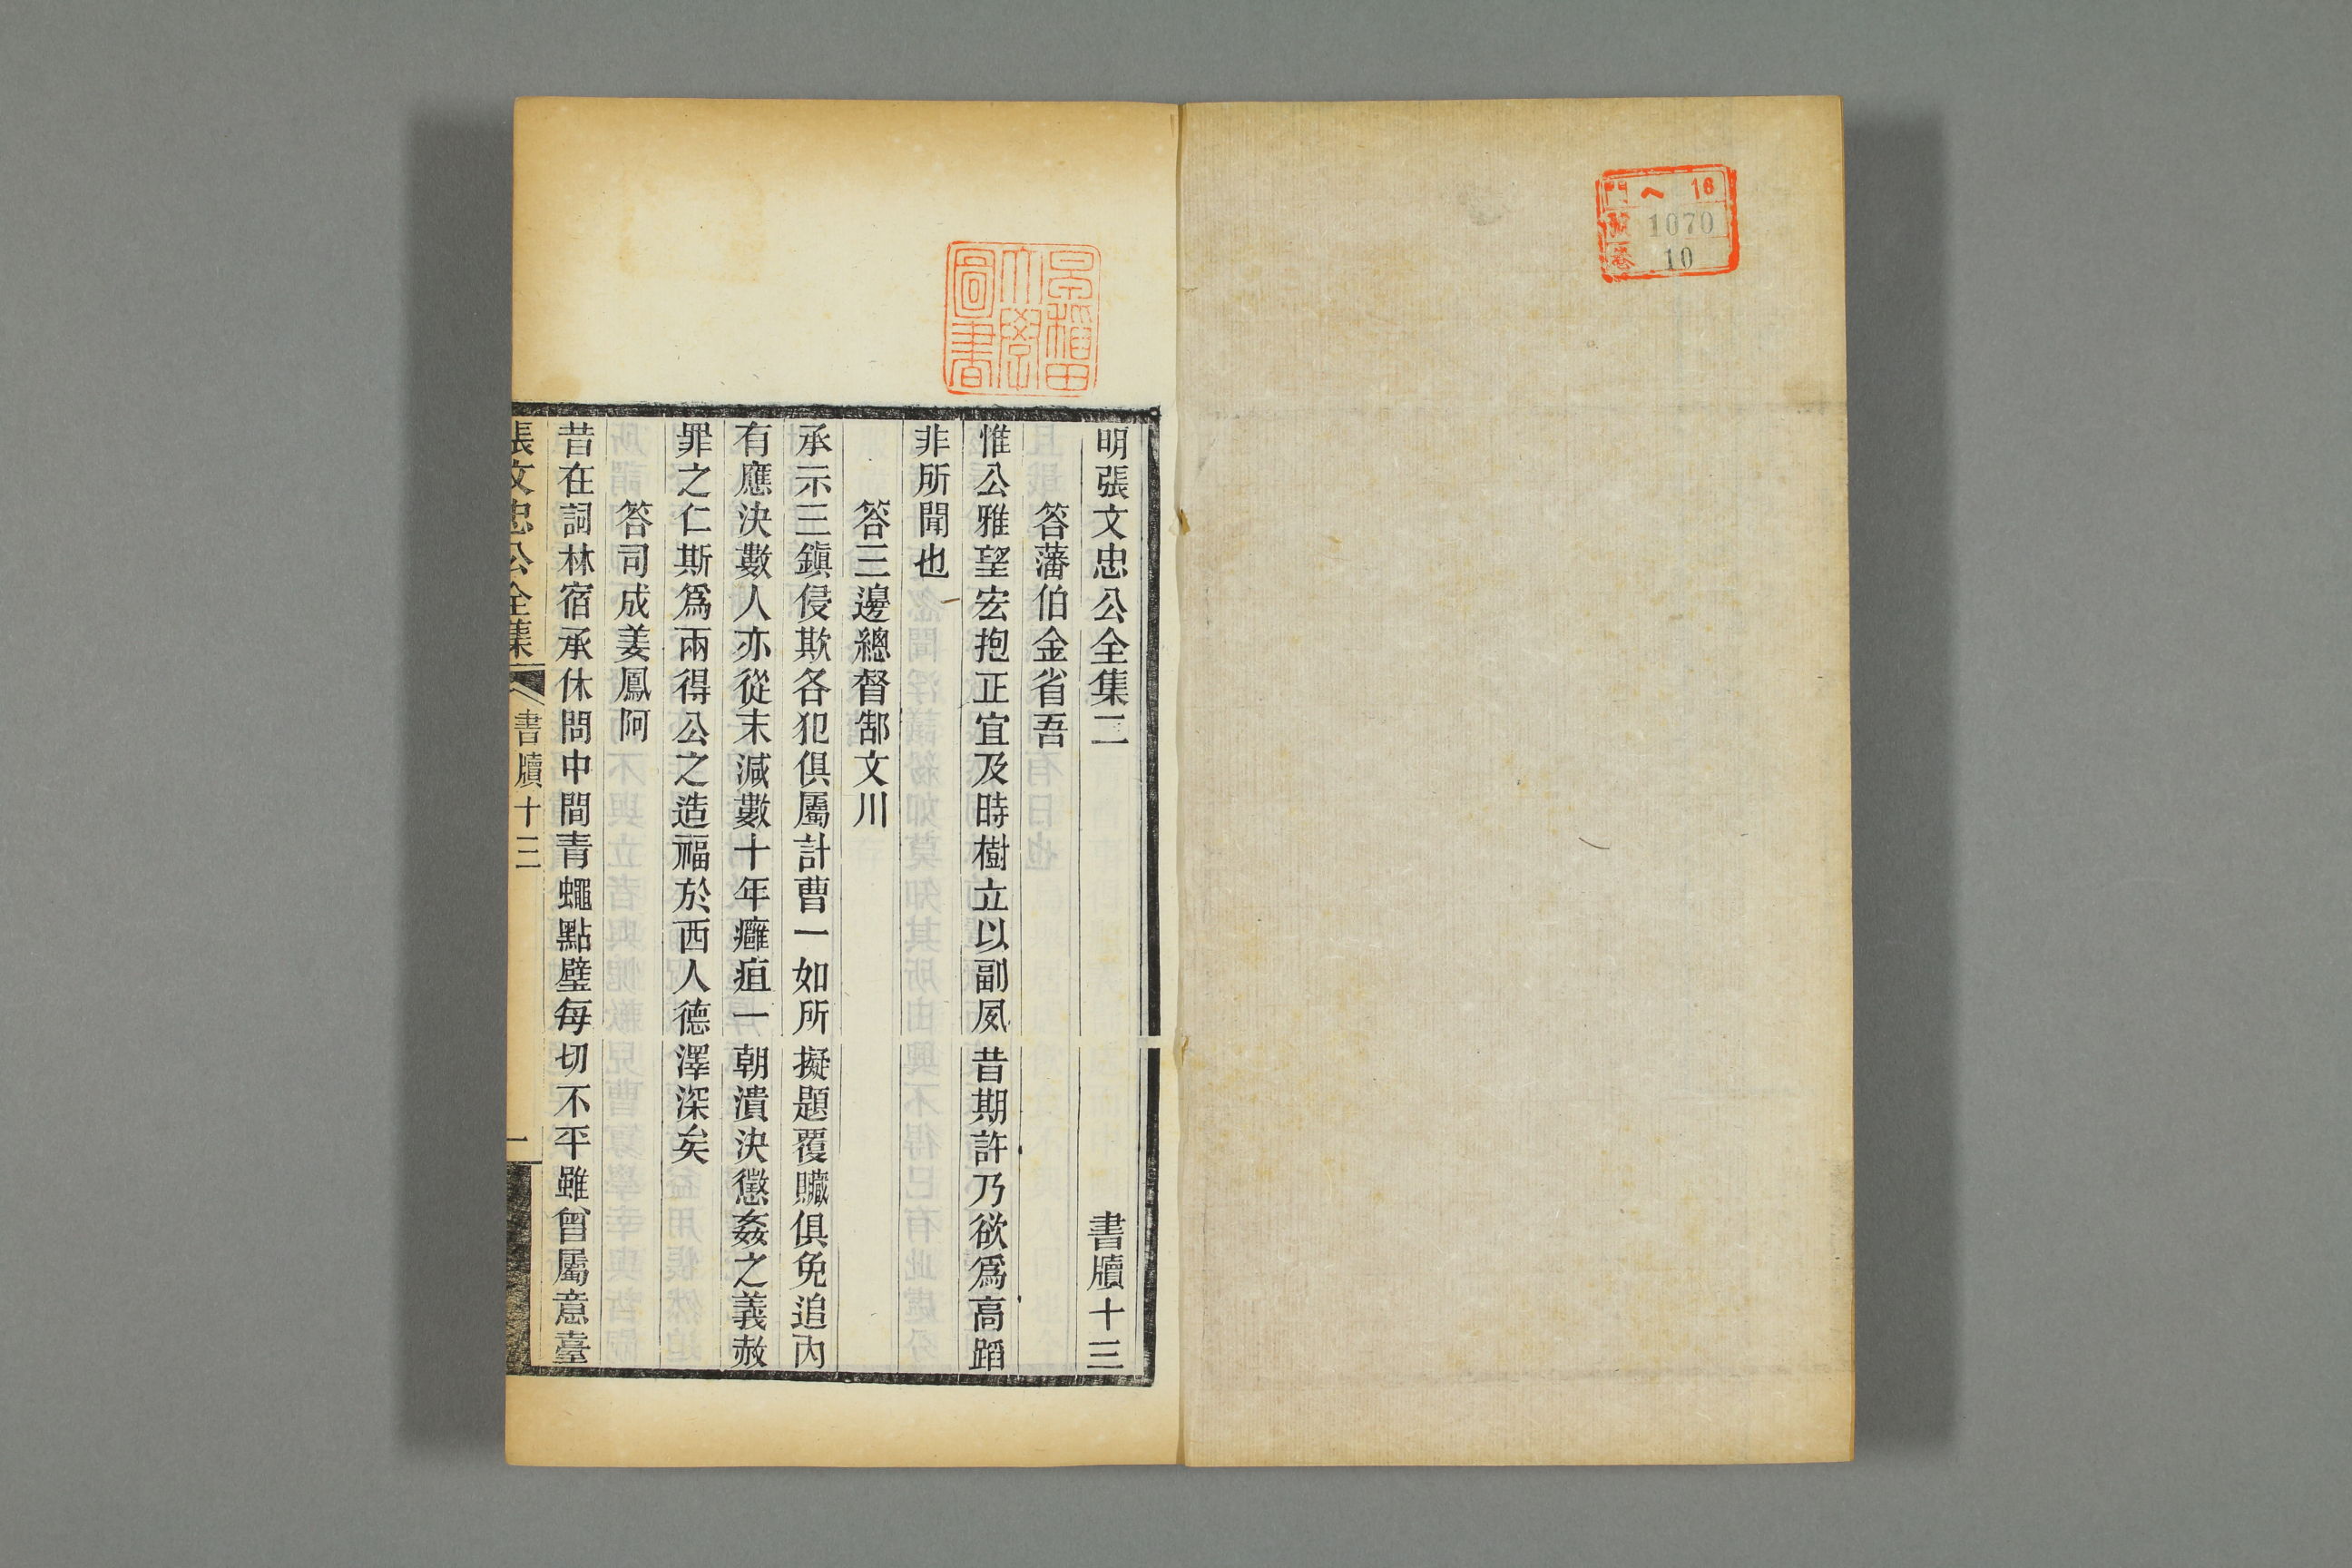 門 ヘ 16
號 1070
卷 10
早稲田大學圖書
明張文忠公全集二 書牘十三
答藩伯金省吾
惟公雅望宏抱正宜及時樹立以副夙昔期許乃欲爲高蹈
非所聞也
答三邊總督郜文川
承示三鎮侵欺各犯俱屬計曹一如所擬題覆贓俱免追內
有應決數人亦從末減數十年癰疽一朝潰決懲姦之義赦
罪之仁斯爲兩得公之造福於西人德澤深矣
答司成姜鳳阿
昔在詞林宿承休問中間青蠅點璧每切不平雖曾屬意臺
張文忠公全集 書牘十三 一